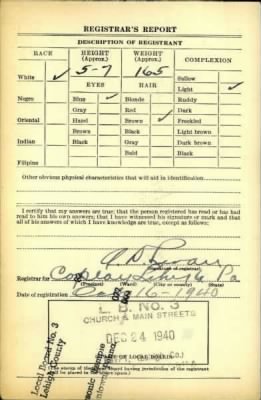 REGISTRAR'S REPORT
DESCRIPTION OF REGISTRANT
RACE HEIGHT (Approx.) WEIGHT (Approx.) COMPLEXION
White ✓ 5-7 165 Sallow
EYES HAIR Light ✓
Negro Blue ✓ Blonde Ruddy
Gray Red Dark
Oriental Hazel Brown ✓ Freckled
Brown Black Light brown
Indian Black Gray Dark brown
Bald Black
Filipino
Other obvious physical characteristics that will aid in identification
I certify that my answers are true; that the person registered has read or has had
read to him his own answers; that I have witnessed his signature or mark and that
all of his answers of which I have knowledge are true, except as follows:
(Signature of registrar)
Registrar for Coplay Lehigh Pa
(Precinct) (Ward) (City or county) (State)
Date of registration Oct 16-1940
L. B. NO. 3
CHURCH & MAIN STREETS
DEC 24 1940
OF LOCAL BOARD)
(The stamp of the Local Board having jurisdiction of the registrant
shall be placed in the above space.)
Local Board No. 3
Lehigh County